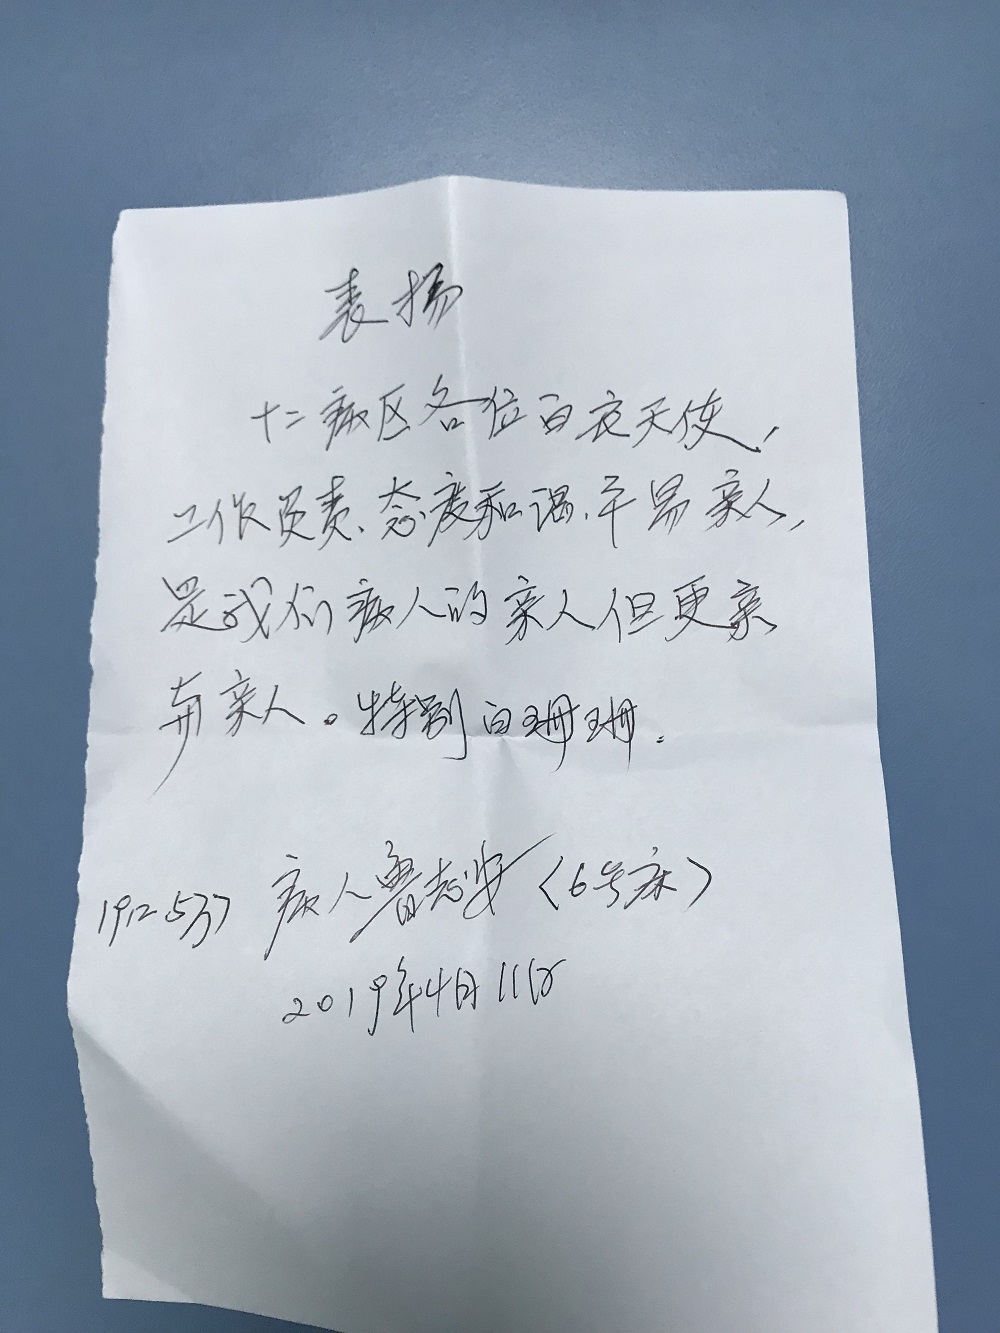 表扬
十二病区各位白衣天使，
工作负责、态度和谒、平易亲人，
是我们病人的亲人但更亲
弃亲人。特别白珊珊。
191253 病人鲁志安（6号床）
2019年4月11日